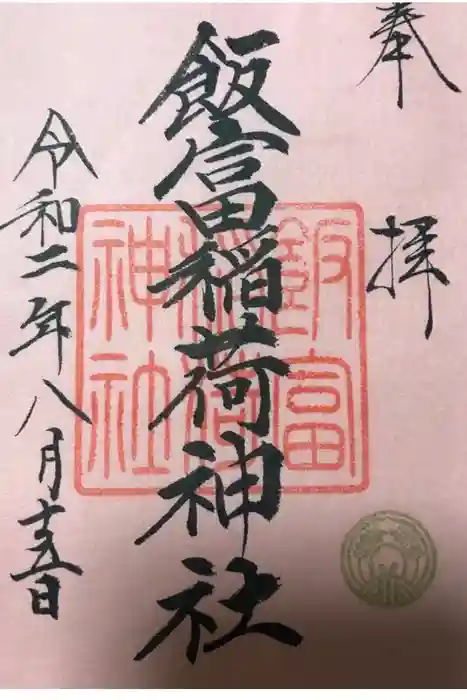 奉拝
飯富稲荷神社
飯富稲荷神社
令和二年八月十五日